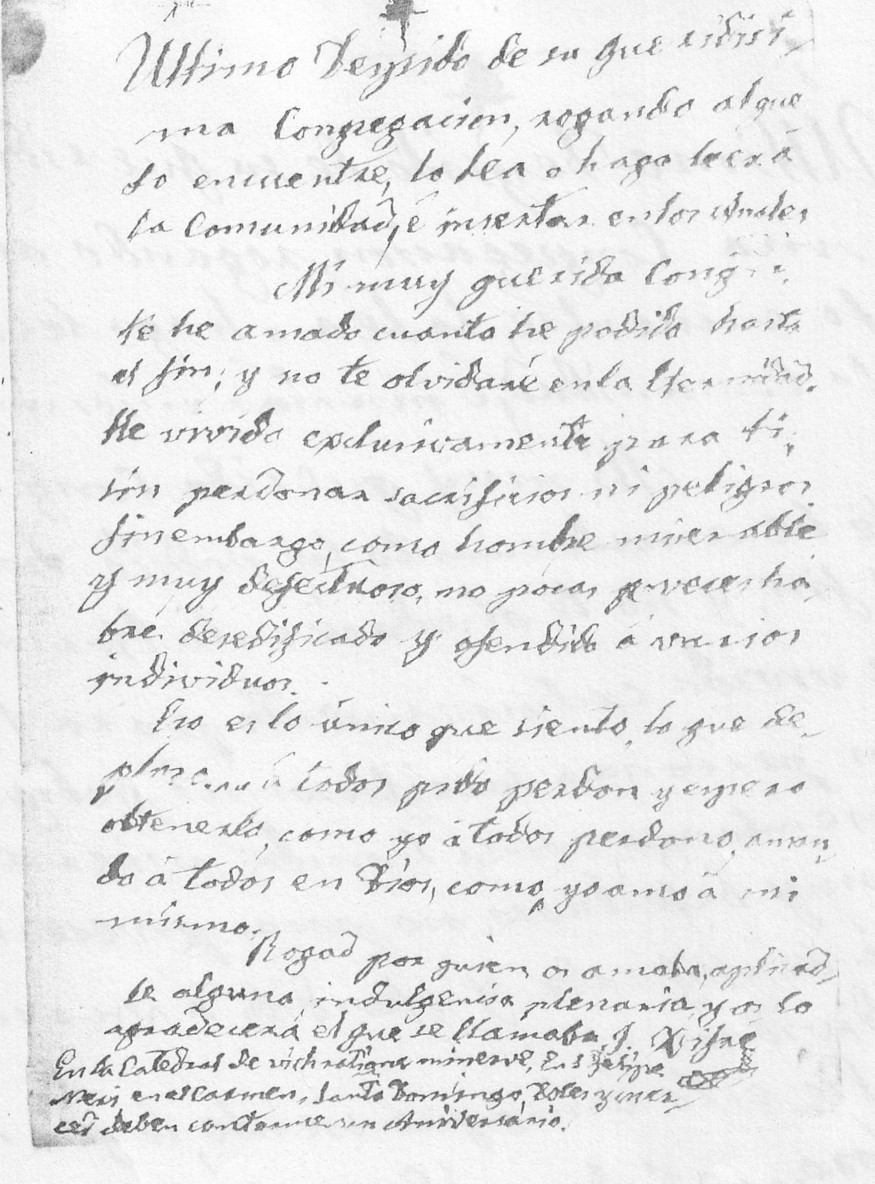 Ultimo Despido de su queridisi-
ma Congregacion, rogando al que
lo encuentre, lo lea o haga leer á
la Comunidad, é insertar en los Anales
Mi muy querida Cong
Te he amado cuanto he podido hasta
el fin; y no te olvidaré en la Eternidad.
He vivido exclusivamente para ti,
sin perdonar sacrificios ni peligros.
Sinembargo, como hombre miserable
y muy defectuoso, no pocas veces ha-
bré desedificado y ofendido á varios
individuos.
Eso es lo único que siento, lo que de-
ploro á todos pido perdon y espero
obtenerlo, como yo á todos perdono, aman-
do á todos en Dios, como yo amo á mi
mismo.
Rogad por quien os amaba, aplicad-
le alguna indulgencia plenaria, y os lo
agradecerá el que se llamaba, J. Xifré
En la Catedral de Vich minerve, En S Felipe
Neri en el Carmen, Santo Domingo, Dolores y mer-
ced deben cantarme un Aniversário.